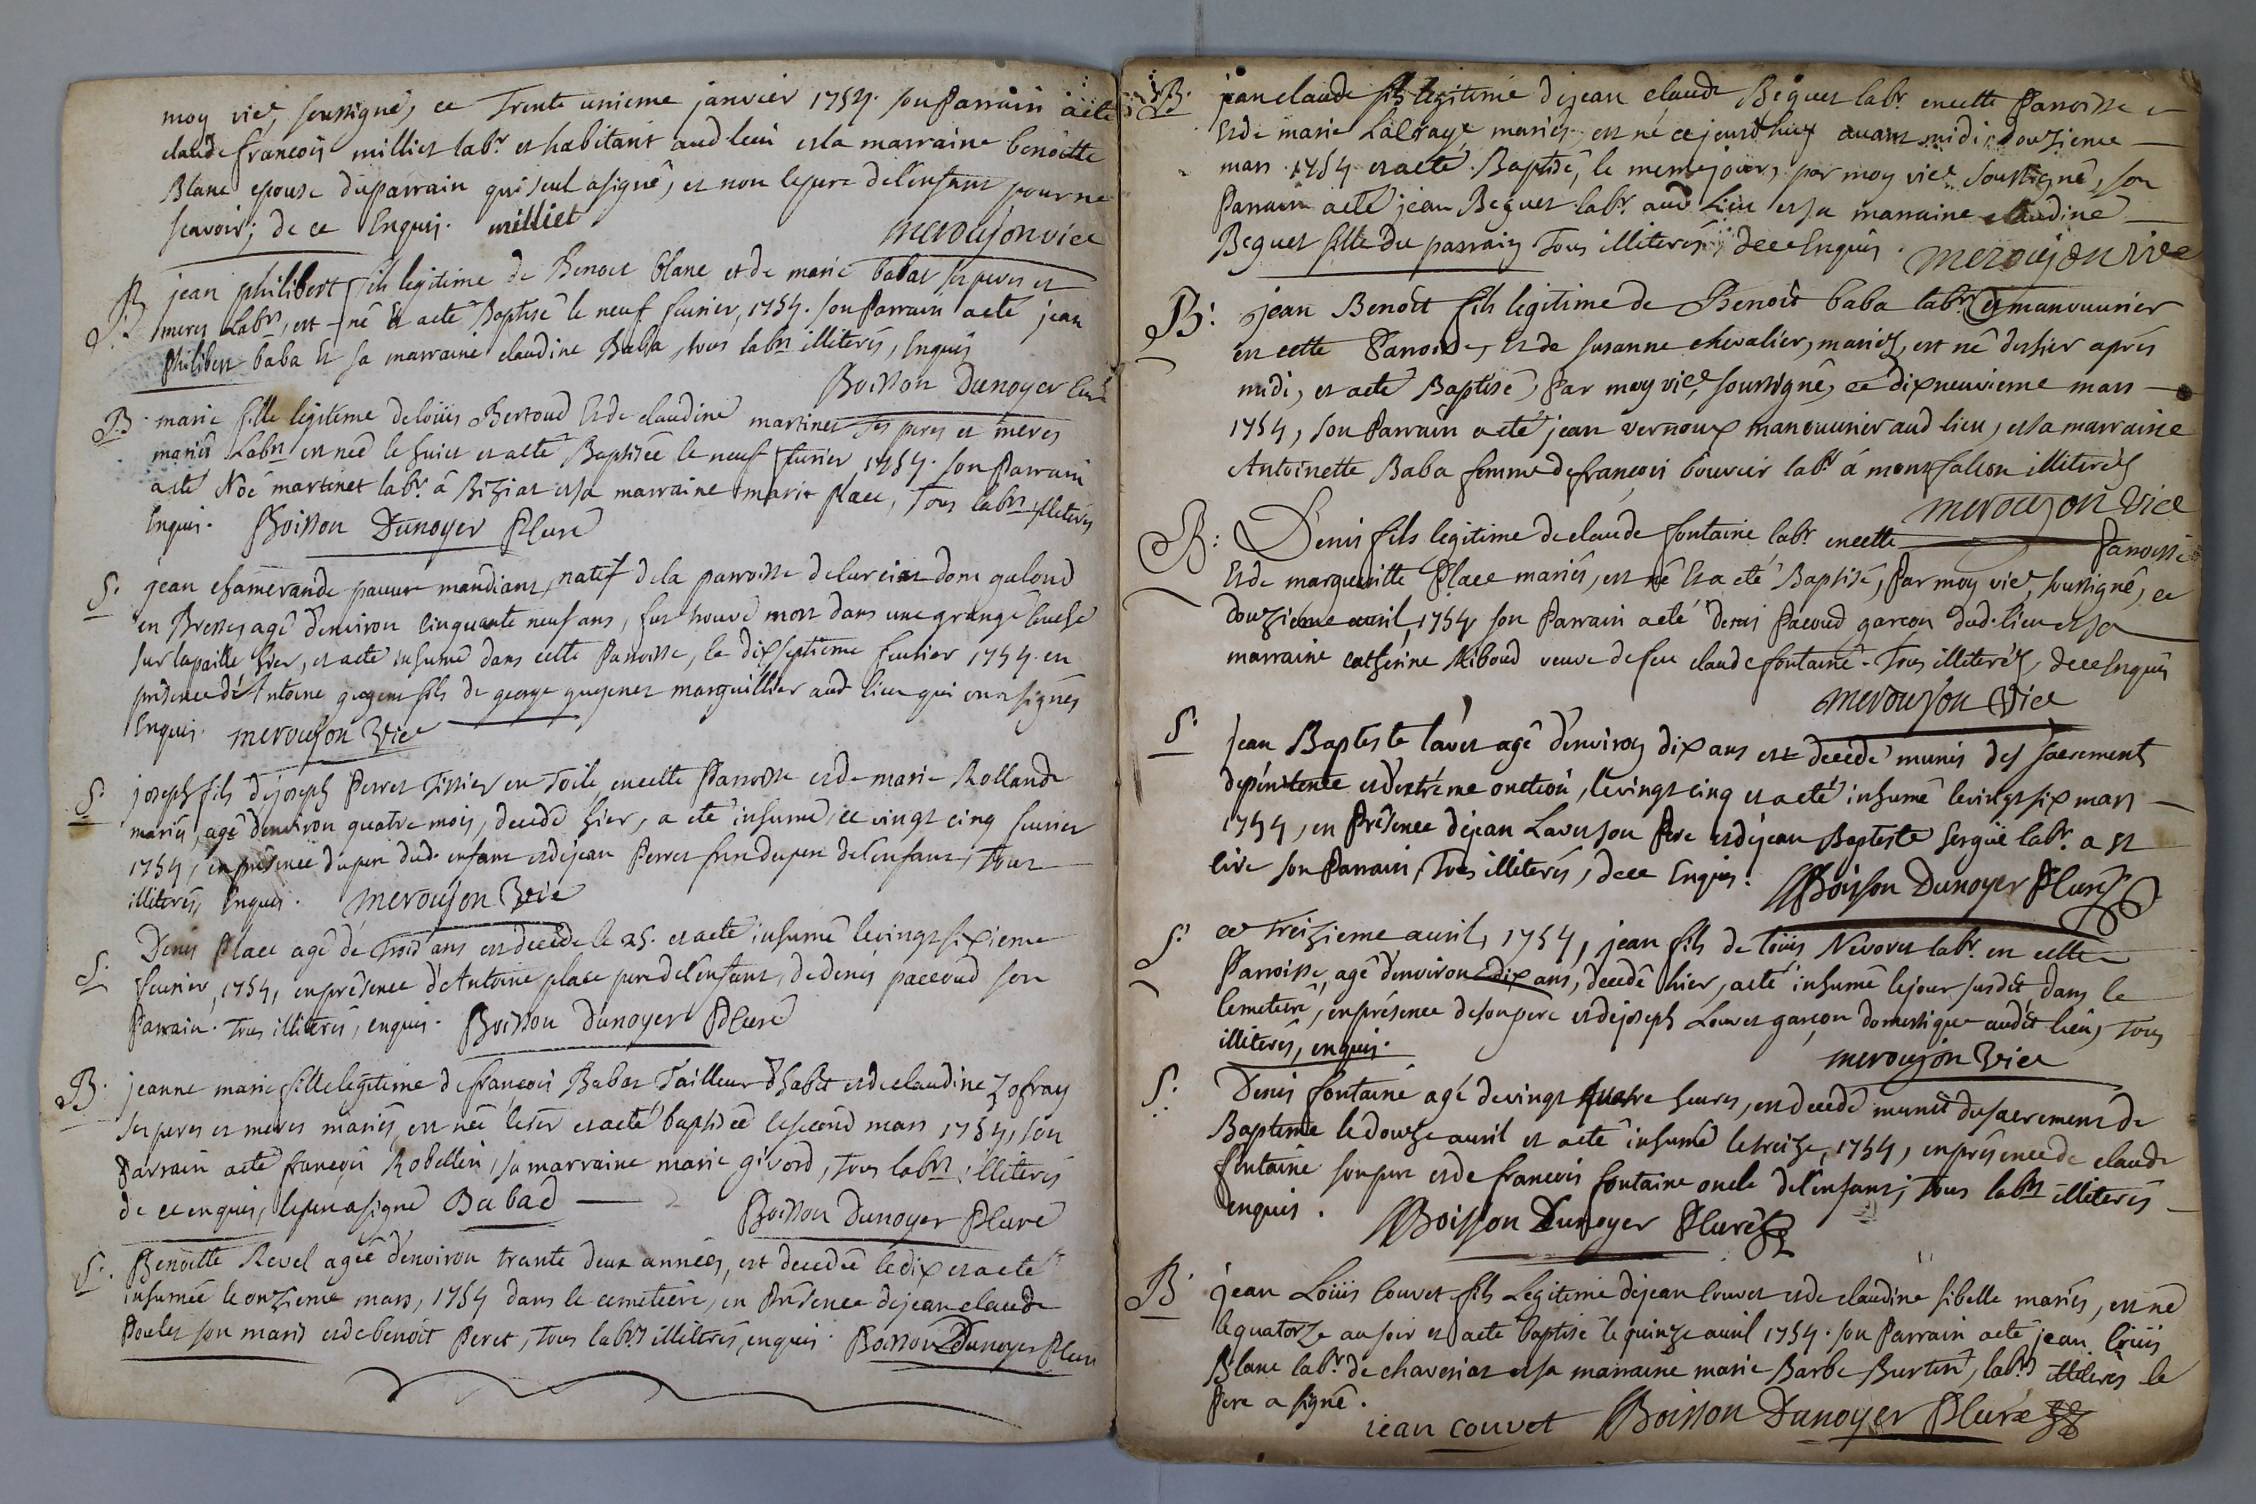 moy vic.e soussigné, ce Trente unieme janvier 1754. son Parrain a eté
claude françois milliet lab.r et habitant aud lieu et sa marraine benoitte
Blanc epouse du parrain qui seul a signé, et non le pere de l'enfant pour ne
scavoir; de ce Enquis. milliet
meroujon vice
B jean philibert fils legitime de Benoit blanc et de marie babat ses peres et
meres Lab.rs, est né Et a eté Baptisé le neuf fevrier, 1754. son Parrain a eté jean
Philibert baba Et sa marraine claudine Baba, tous lab.rs illiterés, Enquis
Boisson Dunoyer Curé
B. marie fille legitime de loüis Bertoud Et de claudine martinet ses peres et meres
mariés Lab.rs est née le huict et a eté Baptisée le neuf fevrier 1754. son Parrain
a eté Noé martinet lab.r à Biziat et sa marraine marie place, Tous lab.rs illiterés
Enquis. Boisson Dunoyer Pl curé
S. jean chamerande pauvre mandiant, natif de la parroisse de curciat dongalond
en Bresse, agé d'environ cinquante neuf ans, fut trouvé mort dans une grange couché
sur la paille hier, et a eté inhumé dans cette Parroisse, le dixseptieme fevrier 1754. en
présence d'Antoine guegene fils de george guegenet marguillier aud lieu qui ont signés
Enquis. meroujon Vice
S. joseph fils de joseph Perret Tissier en Toile en cette Parroisse et de marie Rollande
mariés, agé d'environ quatre mois, decedé hier, a eté inhumé, ce vingt cinq fevrier
1754, en présence du pere dud. enfant et de jean Perret frere du pere de l'enfant, Tous
illiterés, Enquis. meroujon Vice
S. Denis Place agé de Trois ans est decedé le 25. et a eté inhumé le vingt sixieme
fevrier, 1754, en présence d'Antoine place pere de l'enfant, de denis paccoud son
Parrain. Tous illiterés, enquis. Boisson Dunoyer Pl curé
B. jeanne marie fille legitime de françois Babat Tailleur d'habit et de claudine Zofray
ses peres et meres mariés, est née hier et a eté baptisée le second mars 1754, son
Parrain a eté françois Robellin, sa marraine marie givord, Tous lab.rs illiterés
de ce enquis, le pere a signé Babad
Boisson Dunoyer Pl curé
S. Benoitte Revel agée d'environ trante deux années, est decedée le dix et a eté
inhumée le onzieme mars, 1754 dans le cemetiere, en Présence de jean claude
Poulet son mary et de benoit Peret, Tous lab.rs illiterés, enquis. Boisson Dunoyer Pl curé
B. jean claude fils legitime de jean claude Béguet lab.r en cette Parroisse
Et de marie Lalraye mariés, est né ce jourd'huy avant midi, douzieme
mars 1754 et a eté Baptisé, le meme jour, par moy vic.e soussigné, son
Parrain a eté jean Beguet lab.r aud Lieu et sa marraine claudine
Beguet fille du parrain Tous illiterés, de ce Enquis. meroujon vice
B. jean Benôit fils legitime de Benoit baba lab.r et manouvrier
en cette Parroisse, Et de susanne chevalier, mariés, est né des hier aprés
midi, et a eté Baptisé, Par moy vic.e soussigné, ce dixneuvieme mars
1754, son Parrain a eté jean vernoux manouvrier aud lieu, et sa marraine
Antoinette Baba femme de françois bouvier lab.r à montfalcon illiterés
meroujon vice
B. Denis fils legitime de claude fontaine lab.r en cette Parroisse
Et de margueritte Place mariés, est né Et a eté Baptisé, Par moy vic.e soussigné, ce
douzieme avril, 1754 son Parrain a eté denis Pacoud garçon dud. lieu et sa
marraine catherine Niboud veuve de feu claude fontaine. Tous illiterés, de ce Enquis
meroujon Vice
S. Jean Baptiste Lavet agé d'environ dix ans est decedé munis des sacrement
de penitence et d'extréme onction, le vingt cinq et a eté inhumé le vingt six mars
1754, en Présence de jean Lavet son Pere et de jean Baptiste sergüe lab.r a st
cire son Parrain, Tous illiterés, de ce Enquis. Boisson Dunoyer Pl curé
S. ce Treizieme avril, 1754, jean fils de loüis Nevoret lab.r en cette
Parroisse, agé d'environ dix ans, decedé hier, a eté inhumé le jour susdit, dans le
cemetiere, en présence de son pere et de joseph Louvet garçon domestique audit lieu, Tous
illiterés, enquis.
meroujon Vice
S. Denis fontaine agé de vingt quatre heures, est decedé munit du sacrement de
Bapteme le douze avril et a eté inhumé le treize, 1754, en présence de claude
fontaine son pere et de francois fontaine oncle de l'enfant, Tous lab.rs illiterés
enquis. Boisson Dunoyer Pl curé
B jean Loüis Couvet fils Legitime de jean Couvet et de claudine sibelle mariés, est né
le quatorze au soir et a eté baptisé le quinze avril 1754. son Parrain a eté jean loüis
Blanc lab.r de chaveriat et sa marraine marie Barbe Burtin, lab.rs illiterés le
Pere a signé.
jean couvet Boisson Dunoyer Pl curé